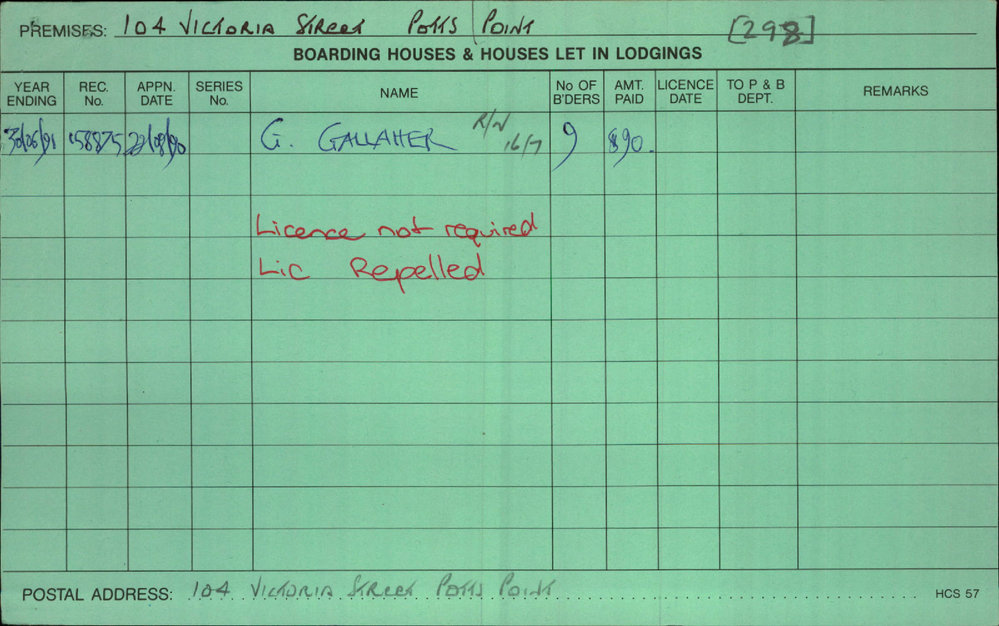 PREMISES: 104 Victoria Street Potts Point [298]
BOARDING HOUSES & HOUSES LET IN LODGINGS
YEAR ENDING REC. No. APPN. DATE SERIES No. NAME No OF B'DERS AMT. PAID LICENCE DATE TO P & B DEPT. REMARKS
30/06/91 158875 22/08/90 G. GALLAHER R/N 16/7 9 $90.
Licence not required
Lic Repelled
POSTAL ADDRESS: 104 Victoria Street Potts Point HCS 57